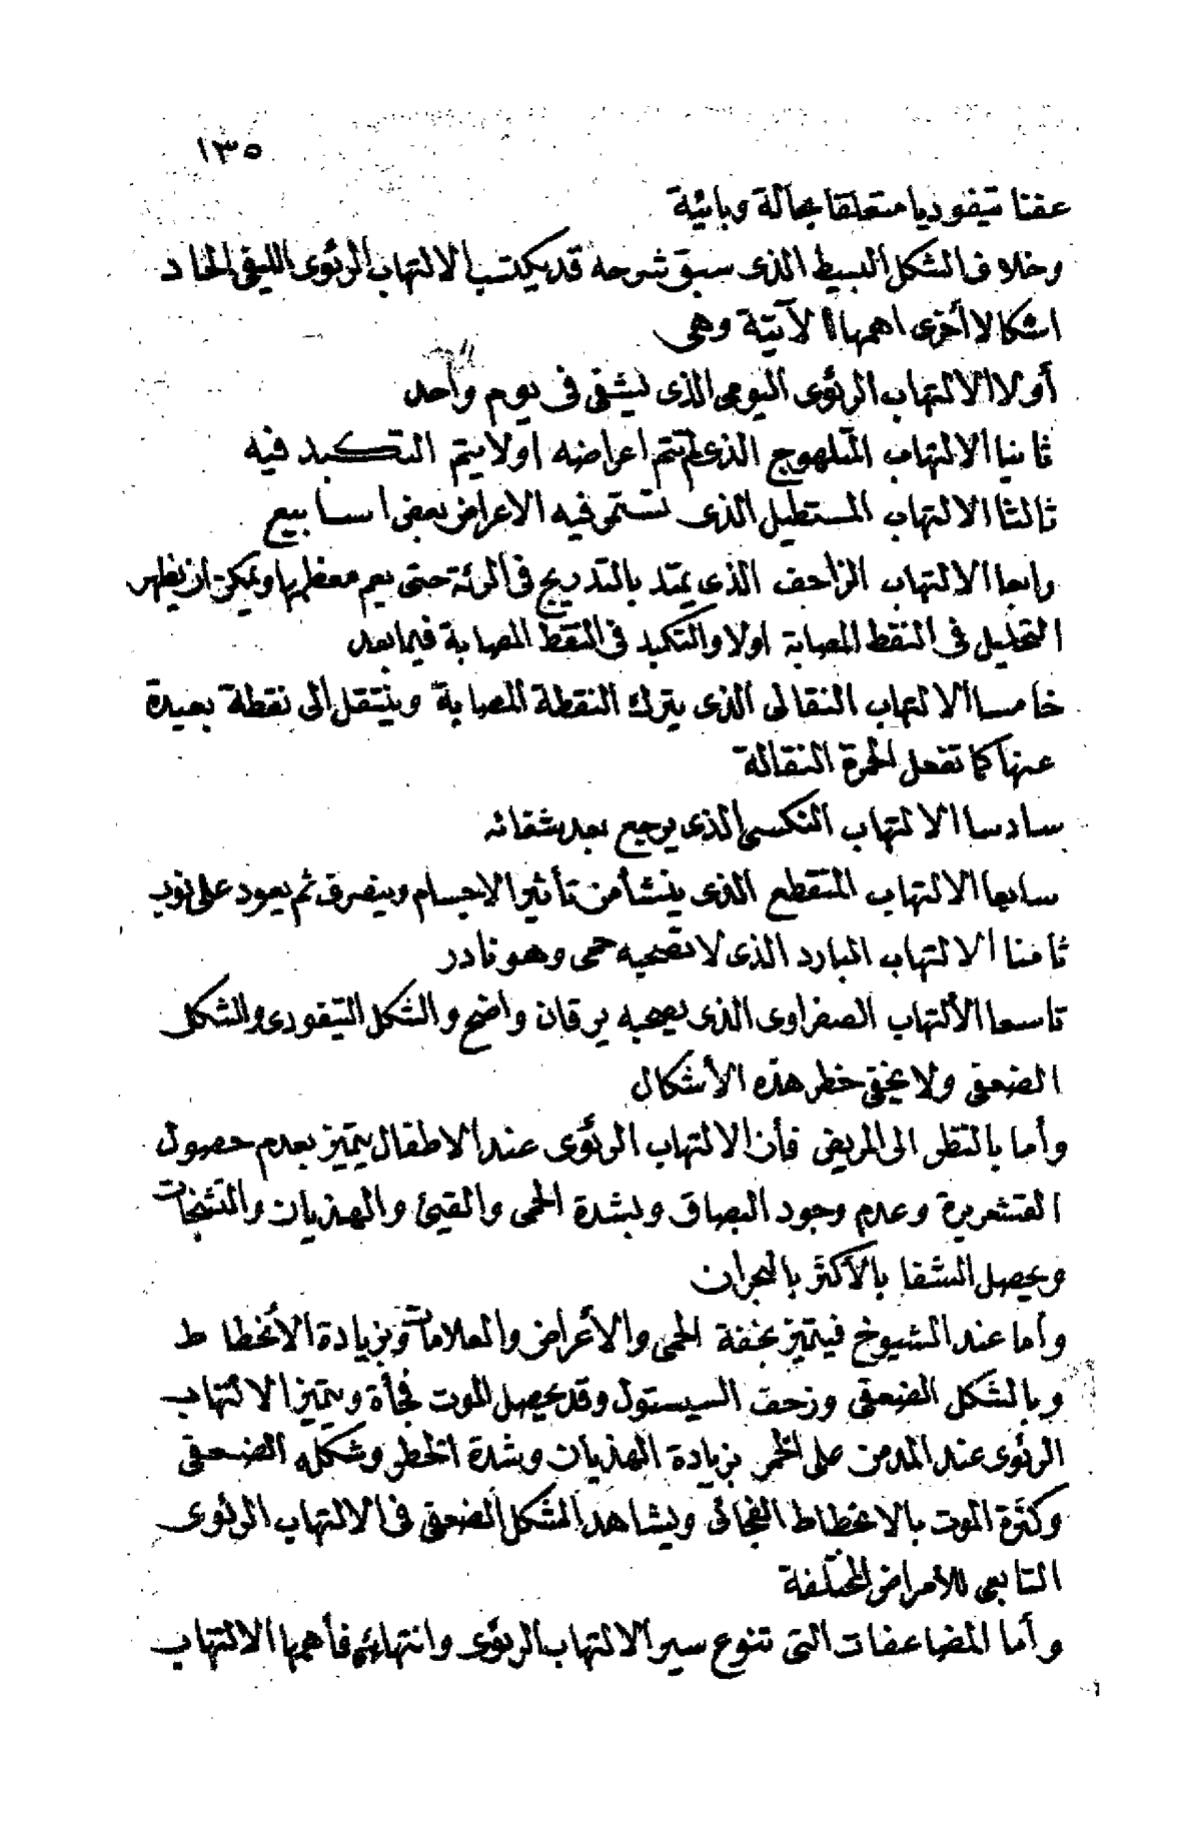 ١٣٥
عفنا تيفوديا متعلقا بحالة وبائية
وخلاف الشكل البسيط الذى سبق شرحه قد يكتسب الالتهاب الرئوى الليفى الحاد
اشكالا أخرى اهمها الآتية وهى
أولا الالتهاب الرئوى اليومى الذى يشفى فى يوم واحد
ثانيا الالتهاب المتلهوج الذى لم تتم اعراضه اولا يتم التكبد فيه
ثالثا الالتهاب المستطيل الذى تستمر فيه الاعراض بعض اسابيع
رابعا الالتهاب الزاحف الذى يمتد بالتدريج فى الرئة حتى يعم معظمها ويمكن ان يظهر
التحليل فى النقط المصابة اولا والتكبد فى النقط المصابة فيما بعد
خامسا الالتهاب النقالى الذى يترك النقطة المصابة وينتقل الى نقطة بعيدة
عنها كما تفعل الحمرة النقالة
سادسا الالتهاب النكسى الذى يرجع بعد شفائه
سابعا الالتهاب المتقطع الذى ينشأ من تأثير الاجسام وينصرف ثم يعود على نوب
ثامنا الالتهاب البارد الذى لا تصحبه حمى وهو نادر
تاسعا الألتهاب الصفراوى الذى يصحبه يرقان واضح والشكل التيفودى والشكل
الضعفى ولا يخفى خطر هذه الأشكال
وأما بالنظر الى المريض فأن الالتهاب الرئوى عند الاطفال يتميز بعدم حصول
القشعريرة وعدم وجود البصاق وبشدة الحمى والقيئ والهذيان والتشنجات
ويحصل الشفا بالأكثر بالبحران
وأما عند الشيوخ فيتميز بخفة الحمى والأعراض والعلامات وبزيادة الأنحطاط
وبالشكل الضعفى وزحف السيستول وقد يحصل الموت فجأة ويتميز الالتهاب
الرئوى عند المدمن على الخمر بزيادة الهذيان وشدة الخطر وشكله الضعفى
وكثرة الموت بالانحطاط الفجائى ويشاهد الشكل الضعفى فى الالتهاب الرئوى
التابعى للأمراض المختلفة
وأما المضاعفات التى تنوع سير الالتهاب الرئوى وانتهائه فأهمها الالتهاب